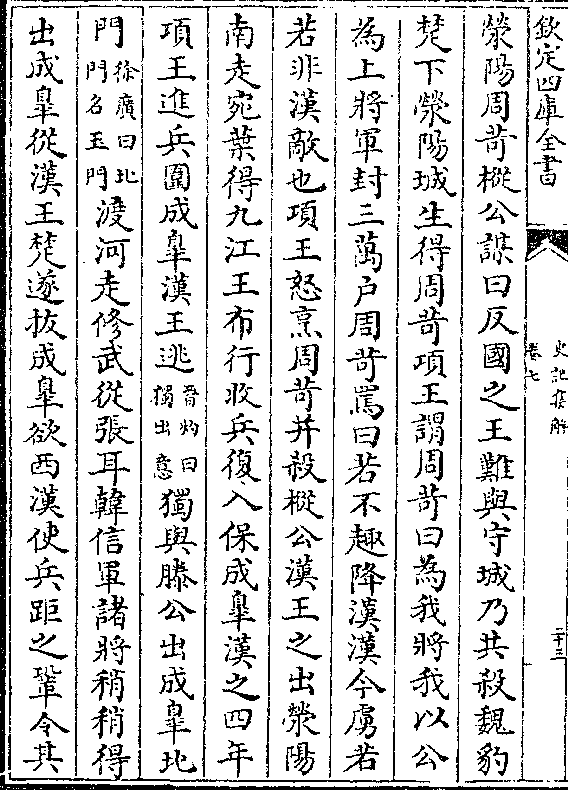 欽定四庫全書
史記集解
卷七
二十三
滎陽周苛樅公謀曰反國之王難與守城乃共殺魏豹
楚下滎陽城生得周苛項王謂周苛曰為我將我以公
為上將軍封三萬户周苛罵曰若不趣降漢漢今虜若
若非漢敵也項王怒烹周苛并殺樅公漢王之出滎陽
南走宛葉得九江王布行收兵復入保成臯漢之四年
項王進兵圍成臯漢王逃晉灼曰獨出意獨與滕公出成臯北
門徐廣曰北門名玉門渡河走修武從張耳韓信軍諸將稍稍得
出成臯從漢王楚遂拔成臯欲西漢使兵距之鞏令其